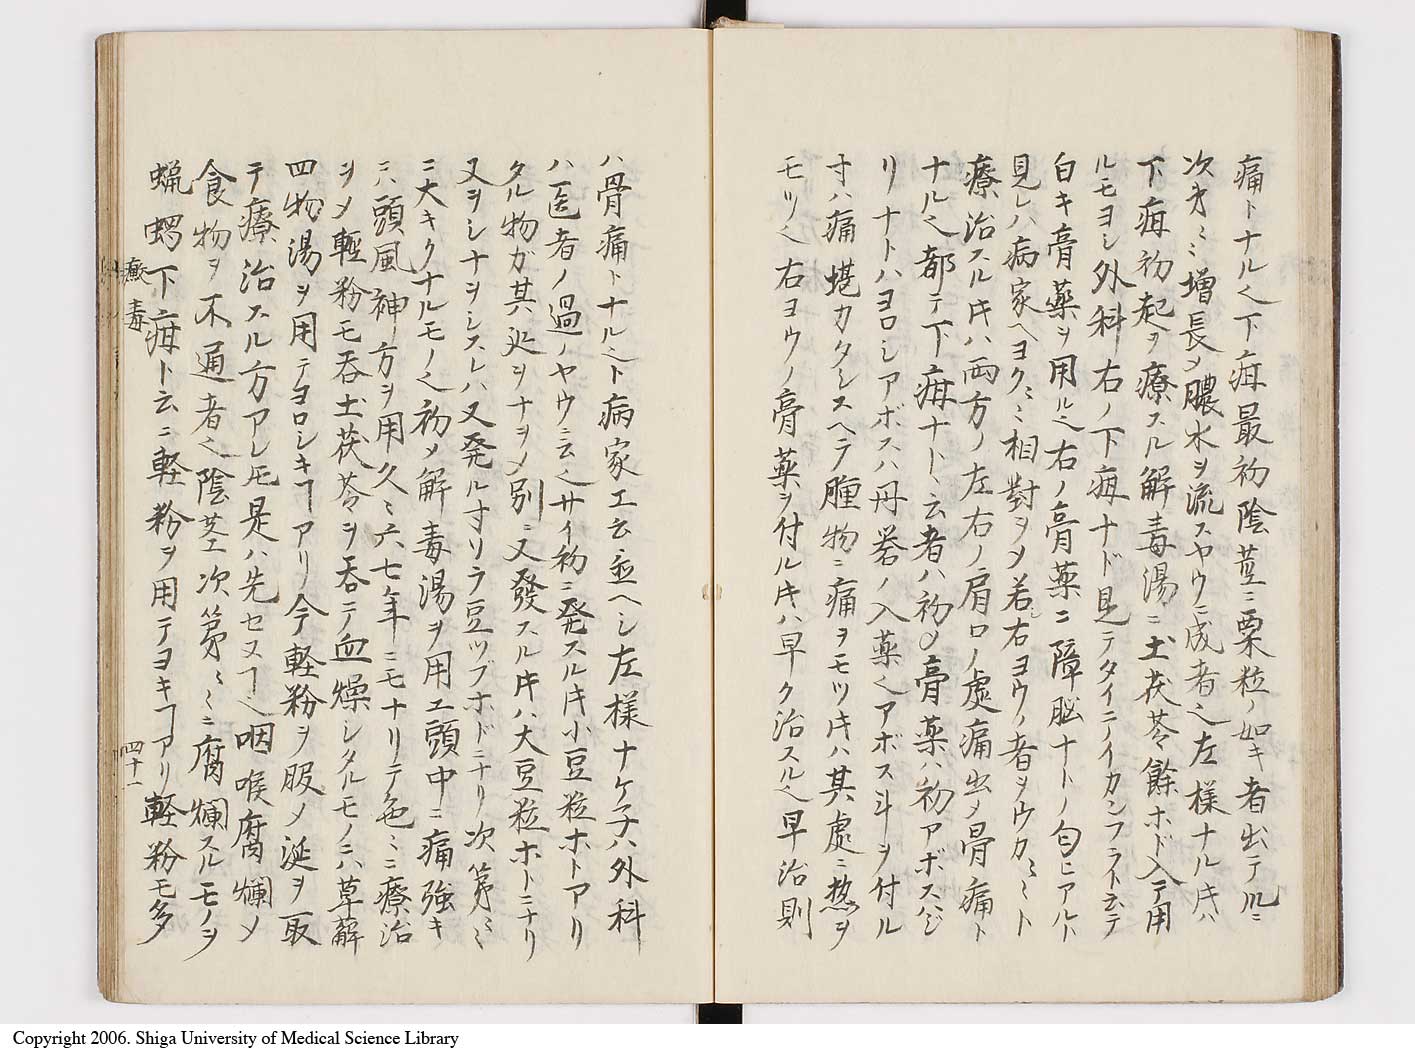 痛トナル也下疳最初陰茎ニ粟粒ノ如キ者出テ凡ニ
次才ミニ増長〆膿水ヲ流スヤウニ成者也左様ナル片ハ
下疳初起ヲ療スル解毒湯ニ土茯苓餘ホド入テ用
ルモヨシ外科右ノ下疳ナド見テタイニノイカンフライト云テ
白キ膏薬ヲ用ル也右ノ膏薬ニ障脳ナトノ匂ヒアルハ
見レハ病家ヘヨクミニ相對ヲ〆若右ヨウノ者ヲウカミミト
療治スル片ハ両方ノ左右ノ肩口ノ處痛出〆骨痛ト
ナル也都テ下疳ナトト云者ハ初〆膏薬ハ初アボスベシ
リナトハヨロシアボスハ丹礬ノ入薬也アボス斗ヲ付ル
寸ハ痛堪カタシスヘテ腫物ニ痛ヲモツ片ハ其處ニ熱ヲ
モツ也右ヨウノ膏薬ヲ付ル片ハ早ク治スル也早治則
ハ骨痛トナル也ト病家エ云並ヘシ左様ナケ子ハ外科
ハ医者ノ過ノヤウニ云也サイ初ニ発スル片小豆粒ホトアリ
タル物ガ其迹ヲナヲ〆別ニ又發スル片ハ大豆粒ホトニナリ
又ヲシナヲシスレハ又発ルすリラ豆ツブホドニナリ次第ミニ
ニ大キクナルモノ也初〆解毒湯ヲ用エ頭中ニ痛強キ
ニハ頭風神方ヲ用久ミ六七年ニモナリテ色ミニ療治
ヲ〆軽粉モ呑土茯苓ヲ呑テ血燥シタルモノニハ草薢
四物湯ヲ用テヨロシキヿアリ今軽粉ヲ服〆涎ヲ取
テ療治スル方アレ𪜈是ハ先セヌヿ也咽喉腐爛〆
食物ヲ不通者也陰茎次第ミニ腐爛スルモノヲ
蝋蠋下疳ト云ニ軽粉ヲ用テヨキヿアリ軽粉モ多
黴毒
四十一
Copyright 2006. Shiga University of Medical Science Library